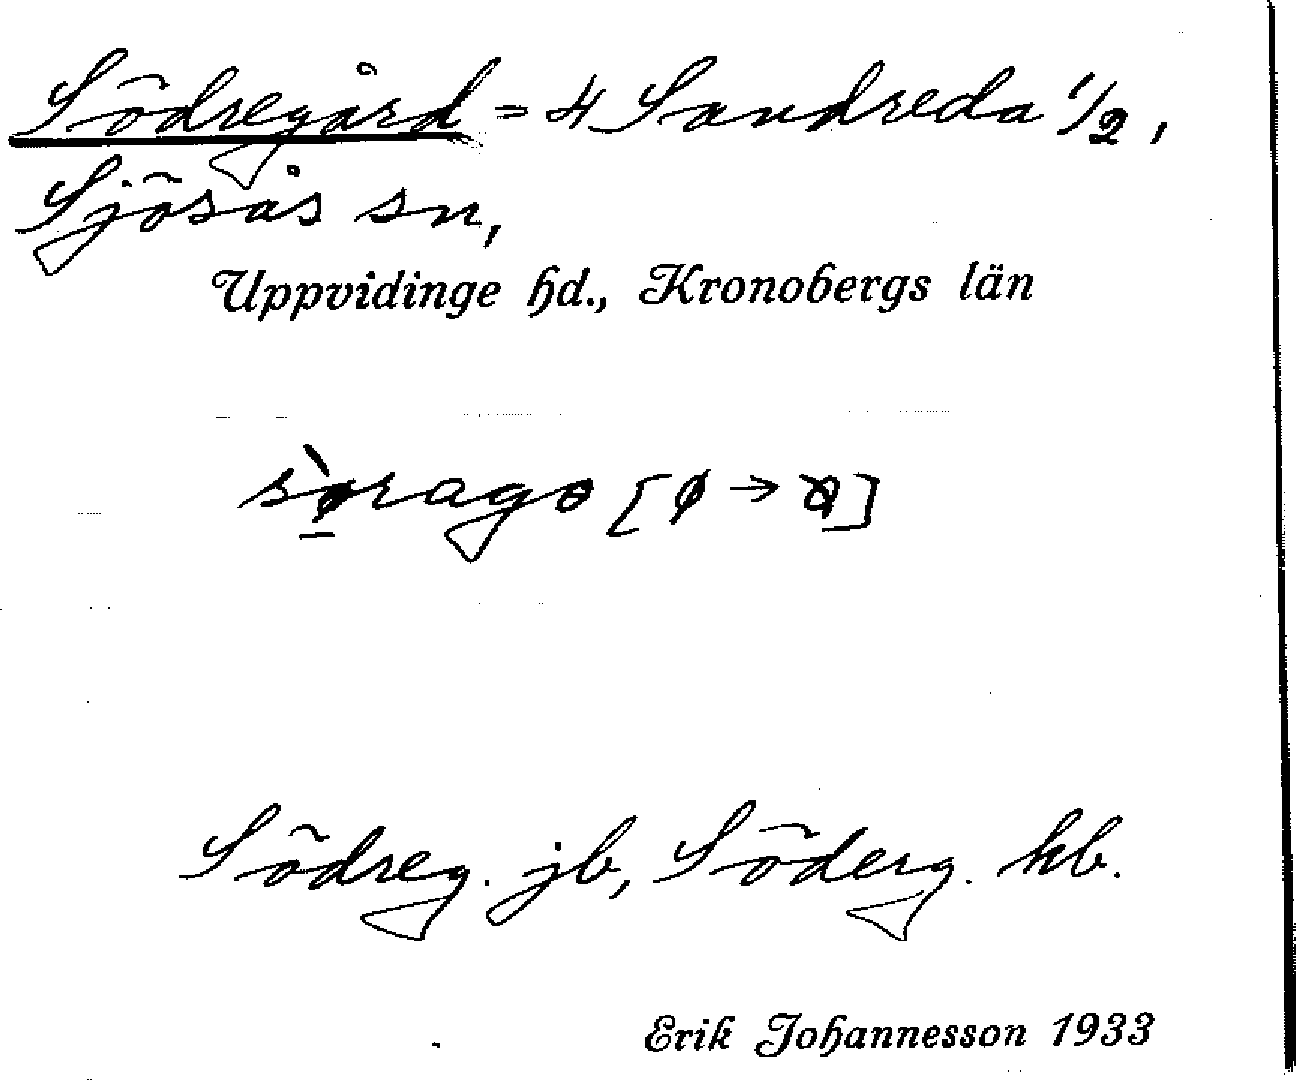 Södregård = 4 Sandreda 1/2,
Sjösås sn,
Uppvidinge hd., Kronobergs län
sø̀ragɵ [ø → ꞝ]
Södreg. jb, Söderg. kb.
Erik Johannesson 1933